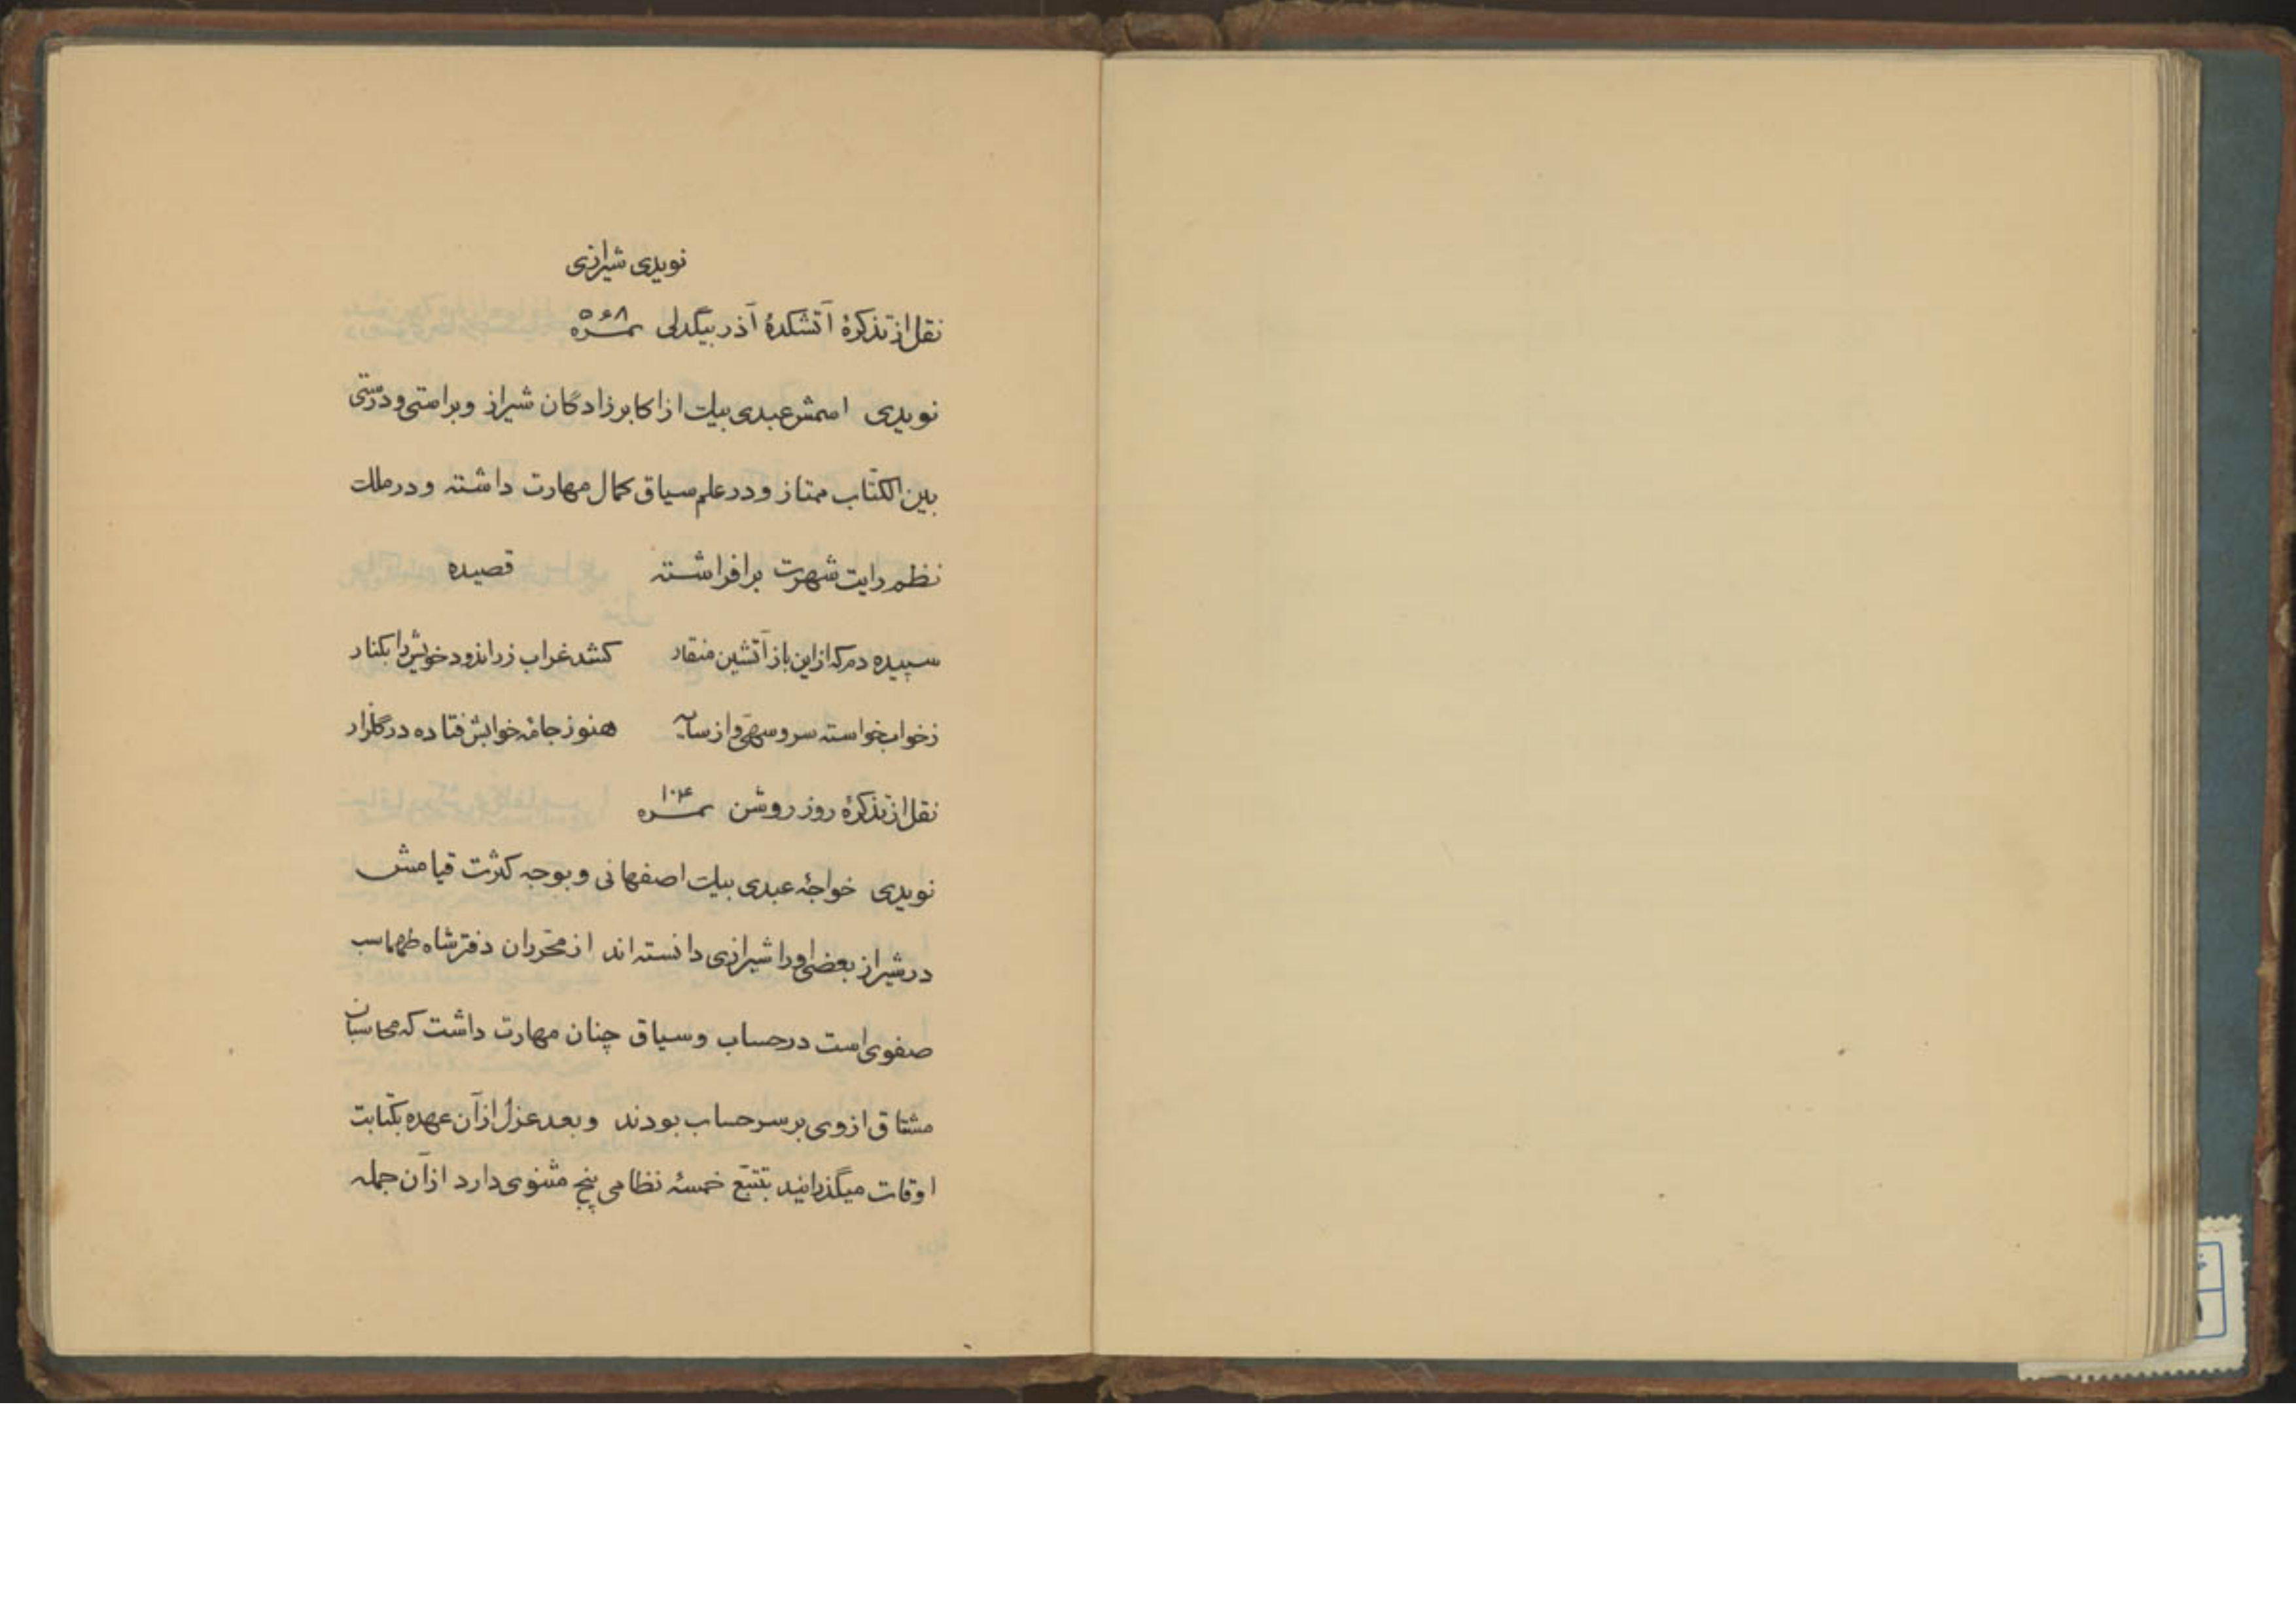 نویدی شیرازی
نقل از تذکرهٔ آتشکدهٔ آذر بیگدلی نمره ۵۶۸
نویدی اسمش عبدی بیک از اکابر زادگان شیراز و براستی و درستی
بین الکتّاب ممتاز و در علم سیاق کمال مهارت داشته و در ملک
نظم رایت شهرت برافراشته قصیده
سپیده دم که ازین باز آتشین منقار کشد غراب زراندود خویش را بکنار
ز خواب خواسته سرو سهی و از سایه هنوز جامهٔ خوابش فتاده در گلزار
نقل از تذکرهٔ روز روشن نمره ۱۰۴
نویدی خواجهٔ عبدی بیک اصفهانی و بوجه کثرت قیامش
در شیراز بعضی او را شیرازی دانسته اند از محرّران دفتر شاه طهماسب
صفوی است در حساب و سیاق چنان مهارت داشت که محاسبان
مشتاق از وی بر سر حساب بودند و بعد عزل از آن عهده بکتابت
اوقات میگذرانید بتتبّع خمسهٔ نظامی پنج مثنوی دارد از آن جمله